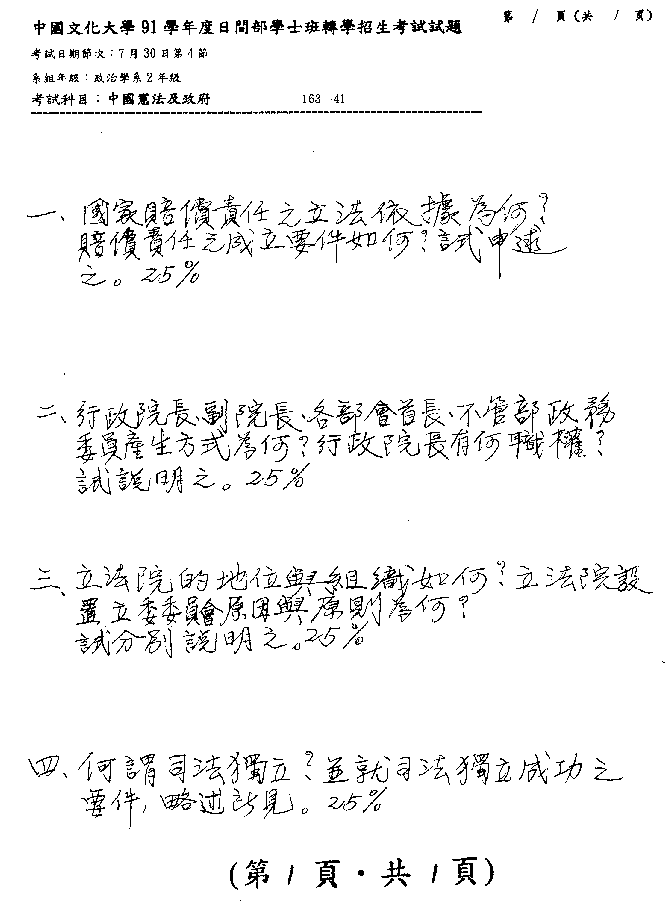 中國文化大學91學年度日間部學士班轉學招生考試試題 第 1 頁(共 1 頁)
考試日期節次:7月30日第4節
系組年級:政治學系2年級
考試科目:中國憲法及政府 163 41
一、國家賠償責任之立法依據為何?
賠償責任之成立要件如何?試申述
之。25%
二、行政院長、副院長、各部會首長、不管部政務
委員產生方式為何?行政院長有何職權?
試說明之。25%
三、立法院的地位與組織如何?立法院設
置立委委員會原因與原則為何?
試分別說明之。25%
四、何謂司法獨立?並就司法獨立成功之
要件,略述所見。25%
(第 1 頁·共 1 頁)